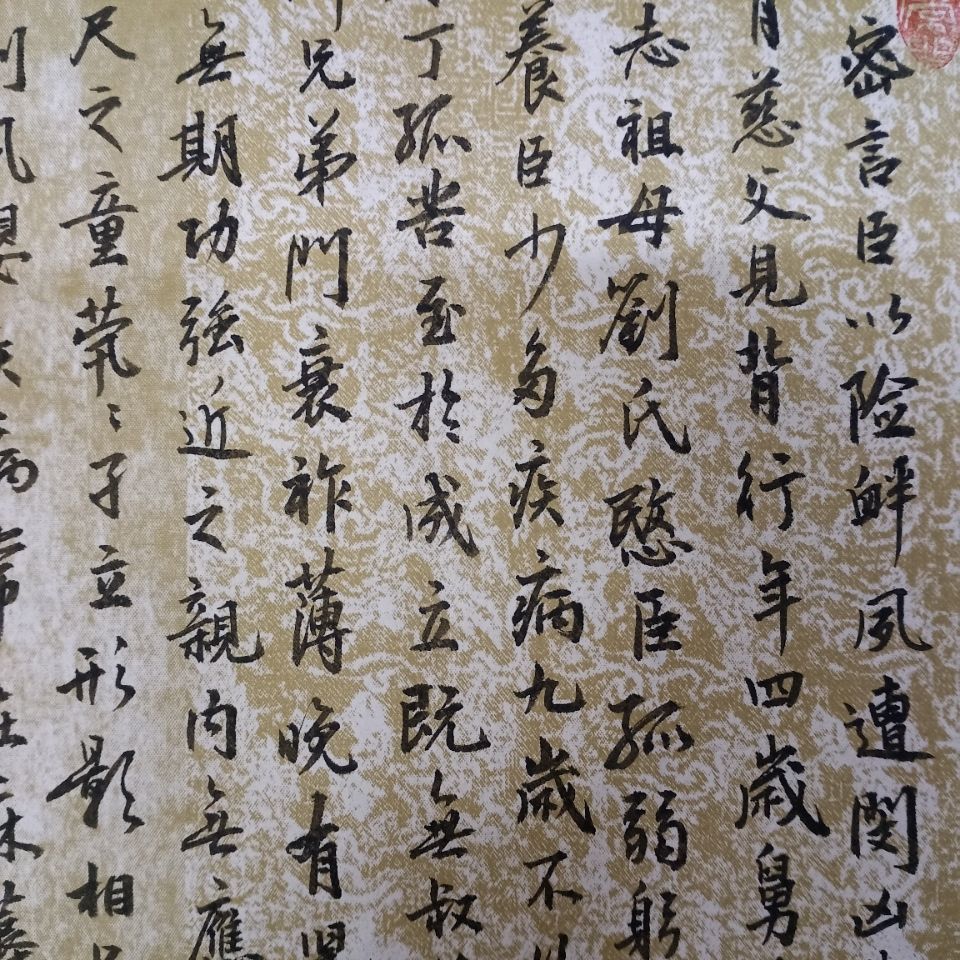 密言臣以险衅夙遭閔凶
月慈父見背行年四歲舅
志祖母劉氏愍臣孤弱躬
養臣少多疾病九歲不
丁孤苦至於成立既無叔
兄弟門衰祚薄晚有
無期功強近之親内無應
尺之童煢〻孑立形影相